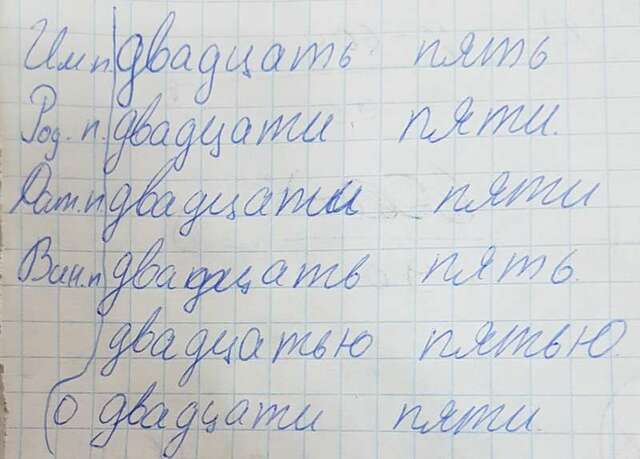 Им.п. двадцать пять
Род. п. двадцати пяти.
Дат.п двадцати пяти
Вин.п двадцать пять.
двадцатью пятью.
о двадцати пяти.